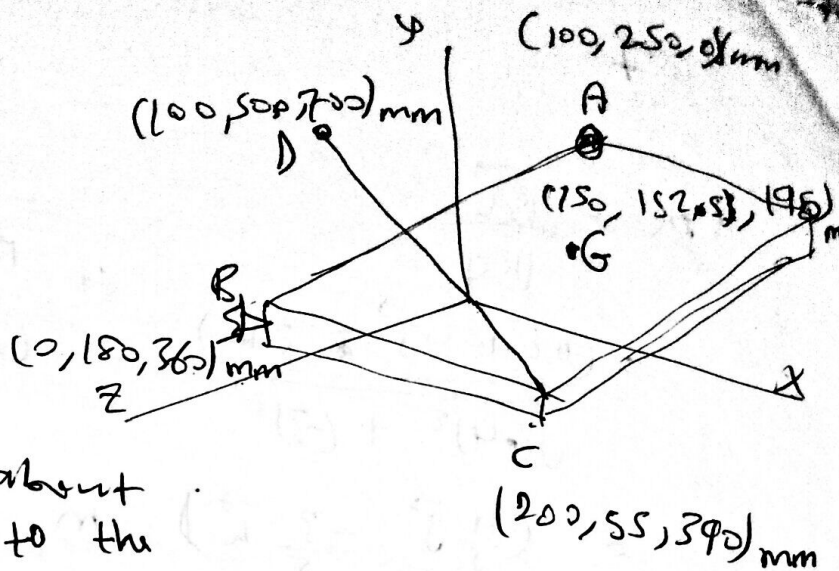 y
(100, 250, 0) mm
A
(100, 500, 700) mm
D
(150, 152.5, 195)
m
G
B
(0, 180, 360) mm
Z
X
C
(200, 55, 390) mm
about
to the